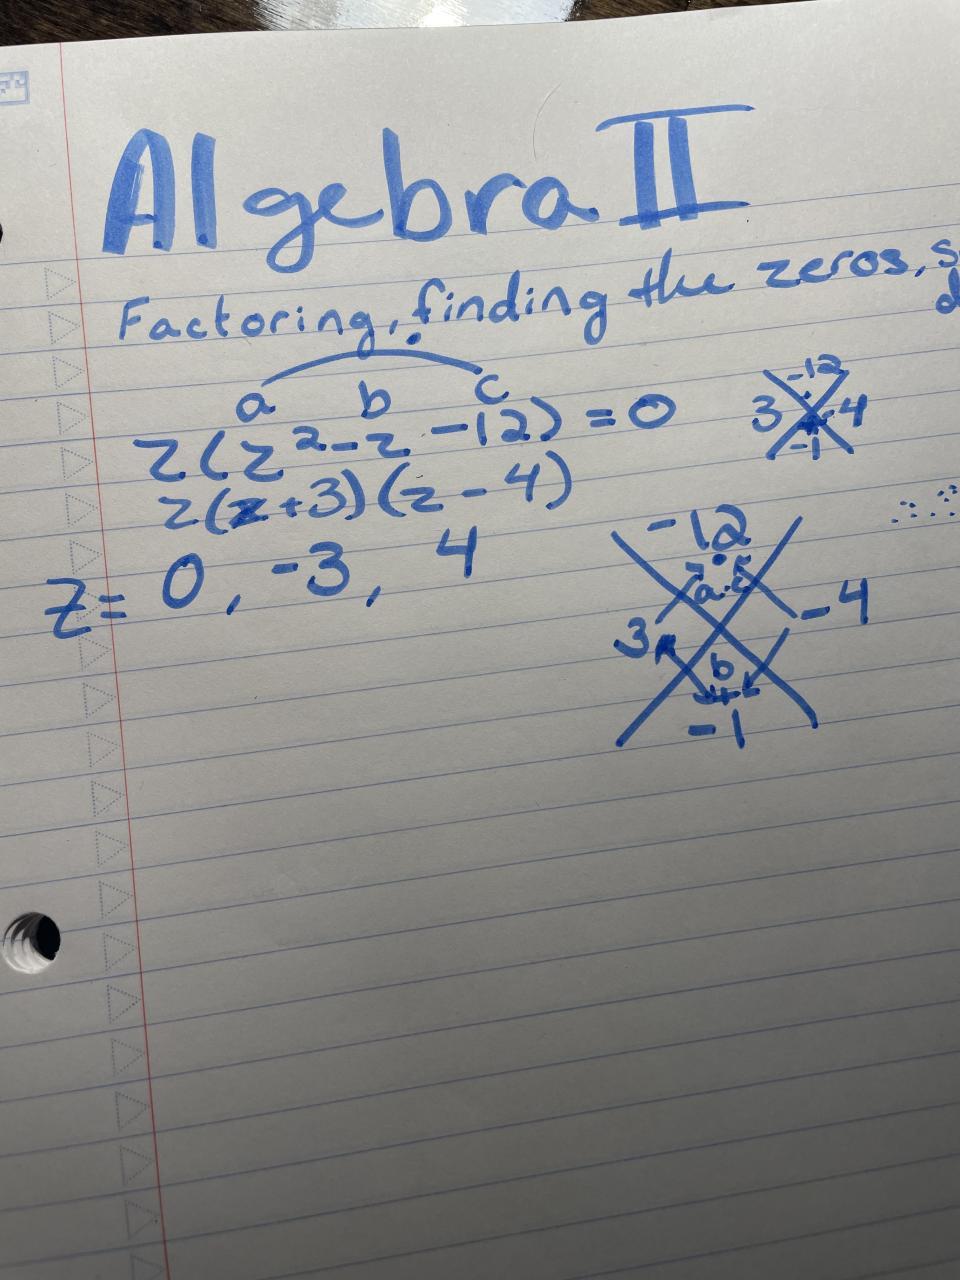 Algebra II
Factoring, finding the zeros,
a b c
z(z²-z-12) = 0
z(z+3)(z-4)
z= 0, -3, 4
-12
3 -4
-1
-12
a·c
3 -4
b
+
-1